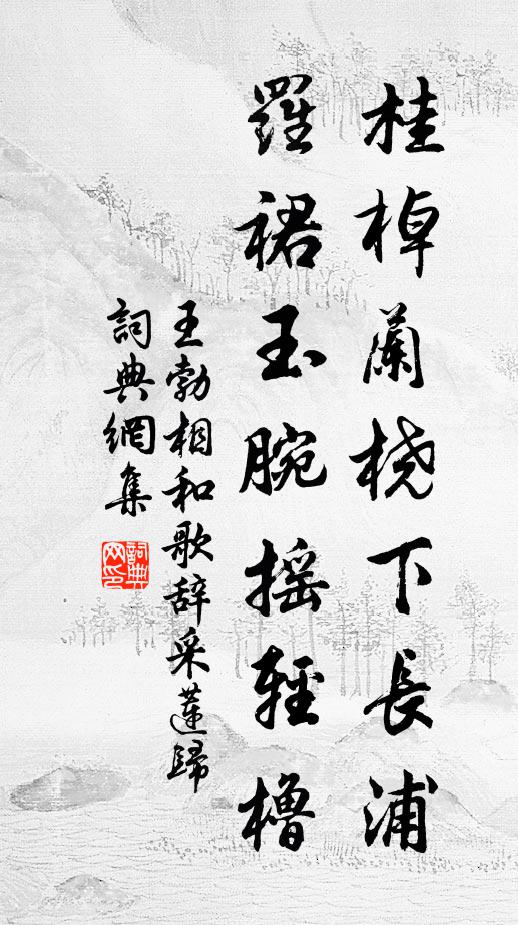 桂棹蘭桡下長浦
羅裙玉腕摇輕櫓
王勃相和歌辞采蓮歸
詞典網集
詞典网印